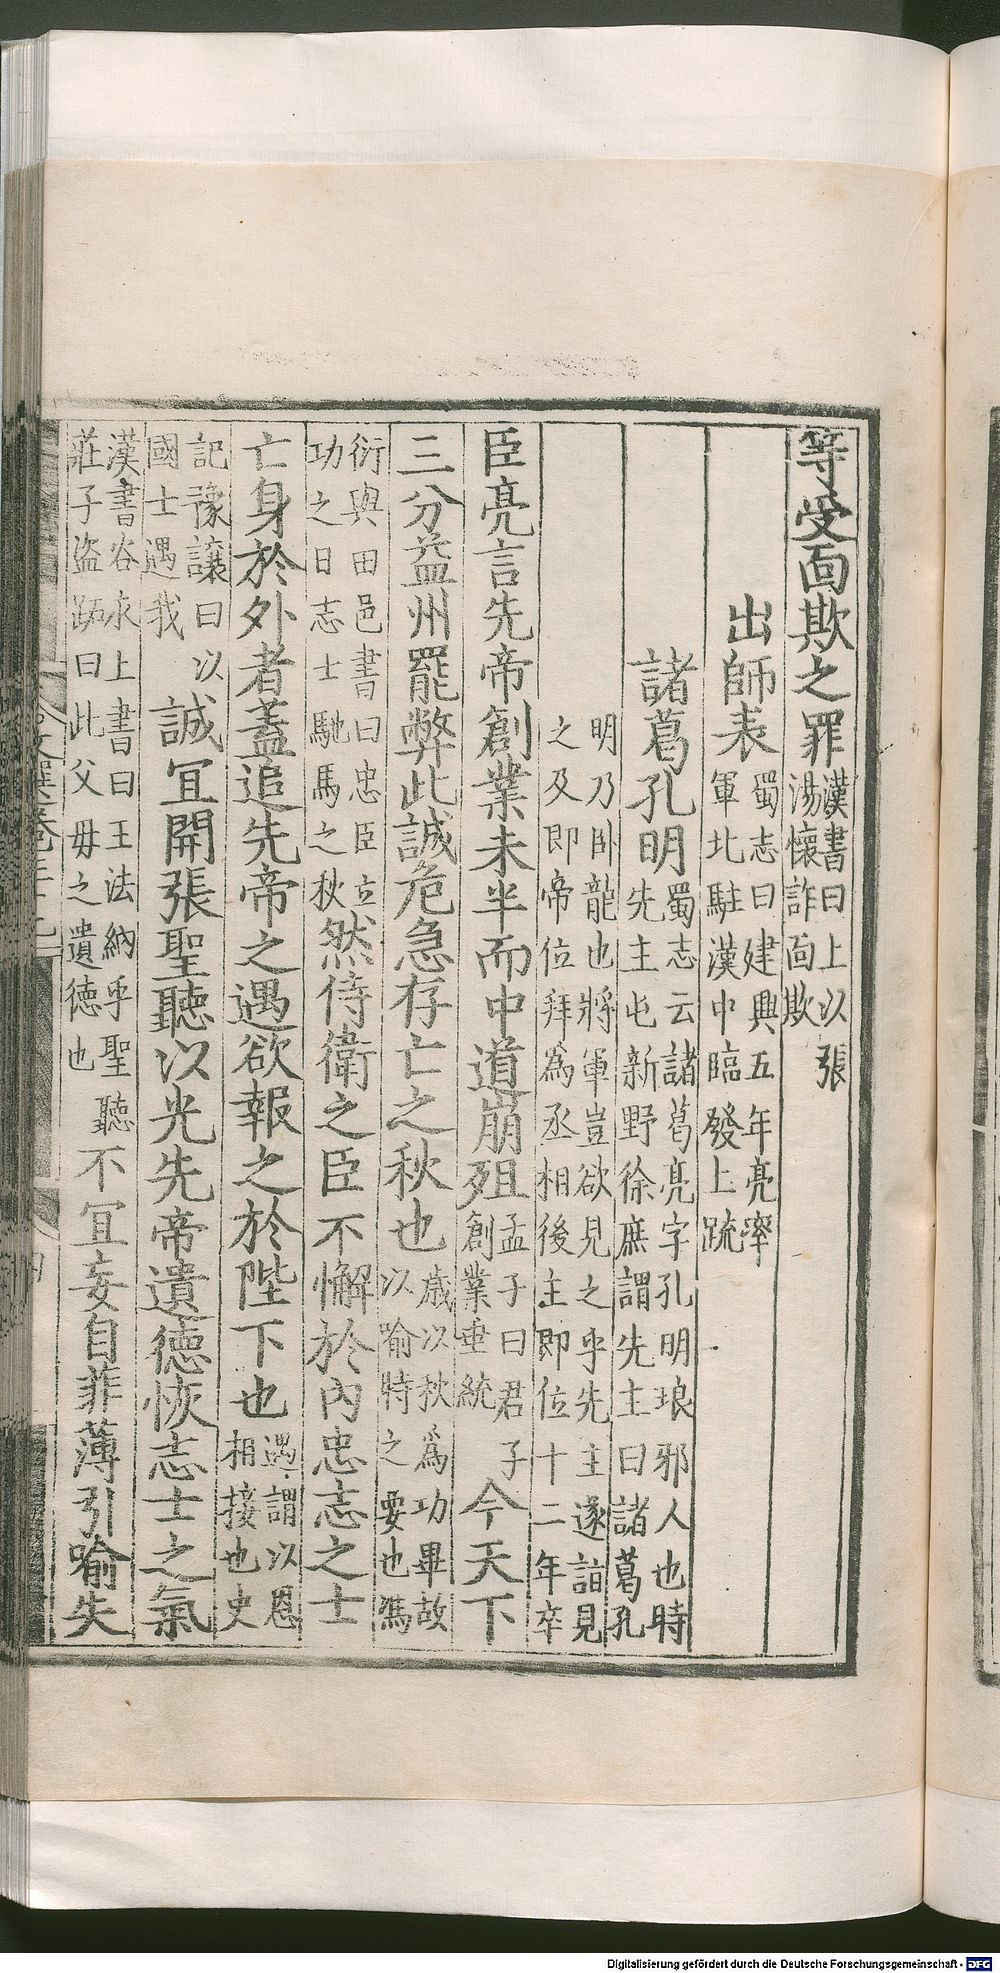 等受面欺之罪漢書曰上以張湯懷詐面欺
出師表蜀志曰建興五年亮率軍北駐漢中臨發上疏
諸葛孔明蜀志云諸葛亮字孔明琅邪人也時先主屯新野徐庶謂先主曰諸葛孔
明乃卧龍也將軍豈欲見之乎先主遂詣見之及即帝位拜為丞相後主即位十二年卒
臣亮言先帝創業未半而中道崩殂孟子曰君子創業垂統今天下
三分益州罷弊此誠危急存亡之秋也歳以秋爲功畢故以喻時之要也馮
衍與田邑書曰忠臣立功之日志士馳馬之秋然侍衛之臣不懈於內忠志之士
亡身於外者蓋追先帝之遇欲報之於陛下也遇謂以恩相接也史
記豫讓曰以國士遇我誠宜開張聖聽以光先帝遺德恢志士之氣
漢書谷永上書曰王法納乎聖聽莊子盜跖曰此父毋之遺德也不宜妄自菲薄引喻失
Digitalisierung gefördert durch die Deutsche Forschungsgemeinschaft - DFG